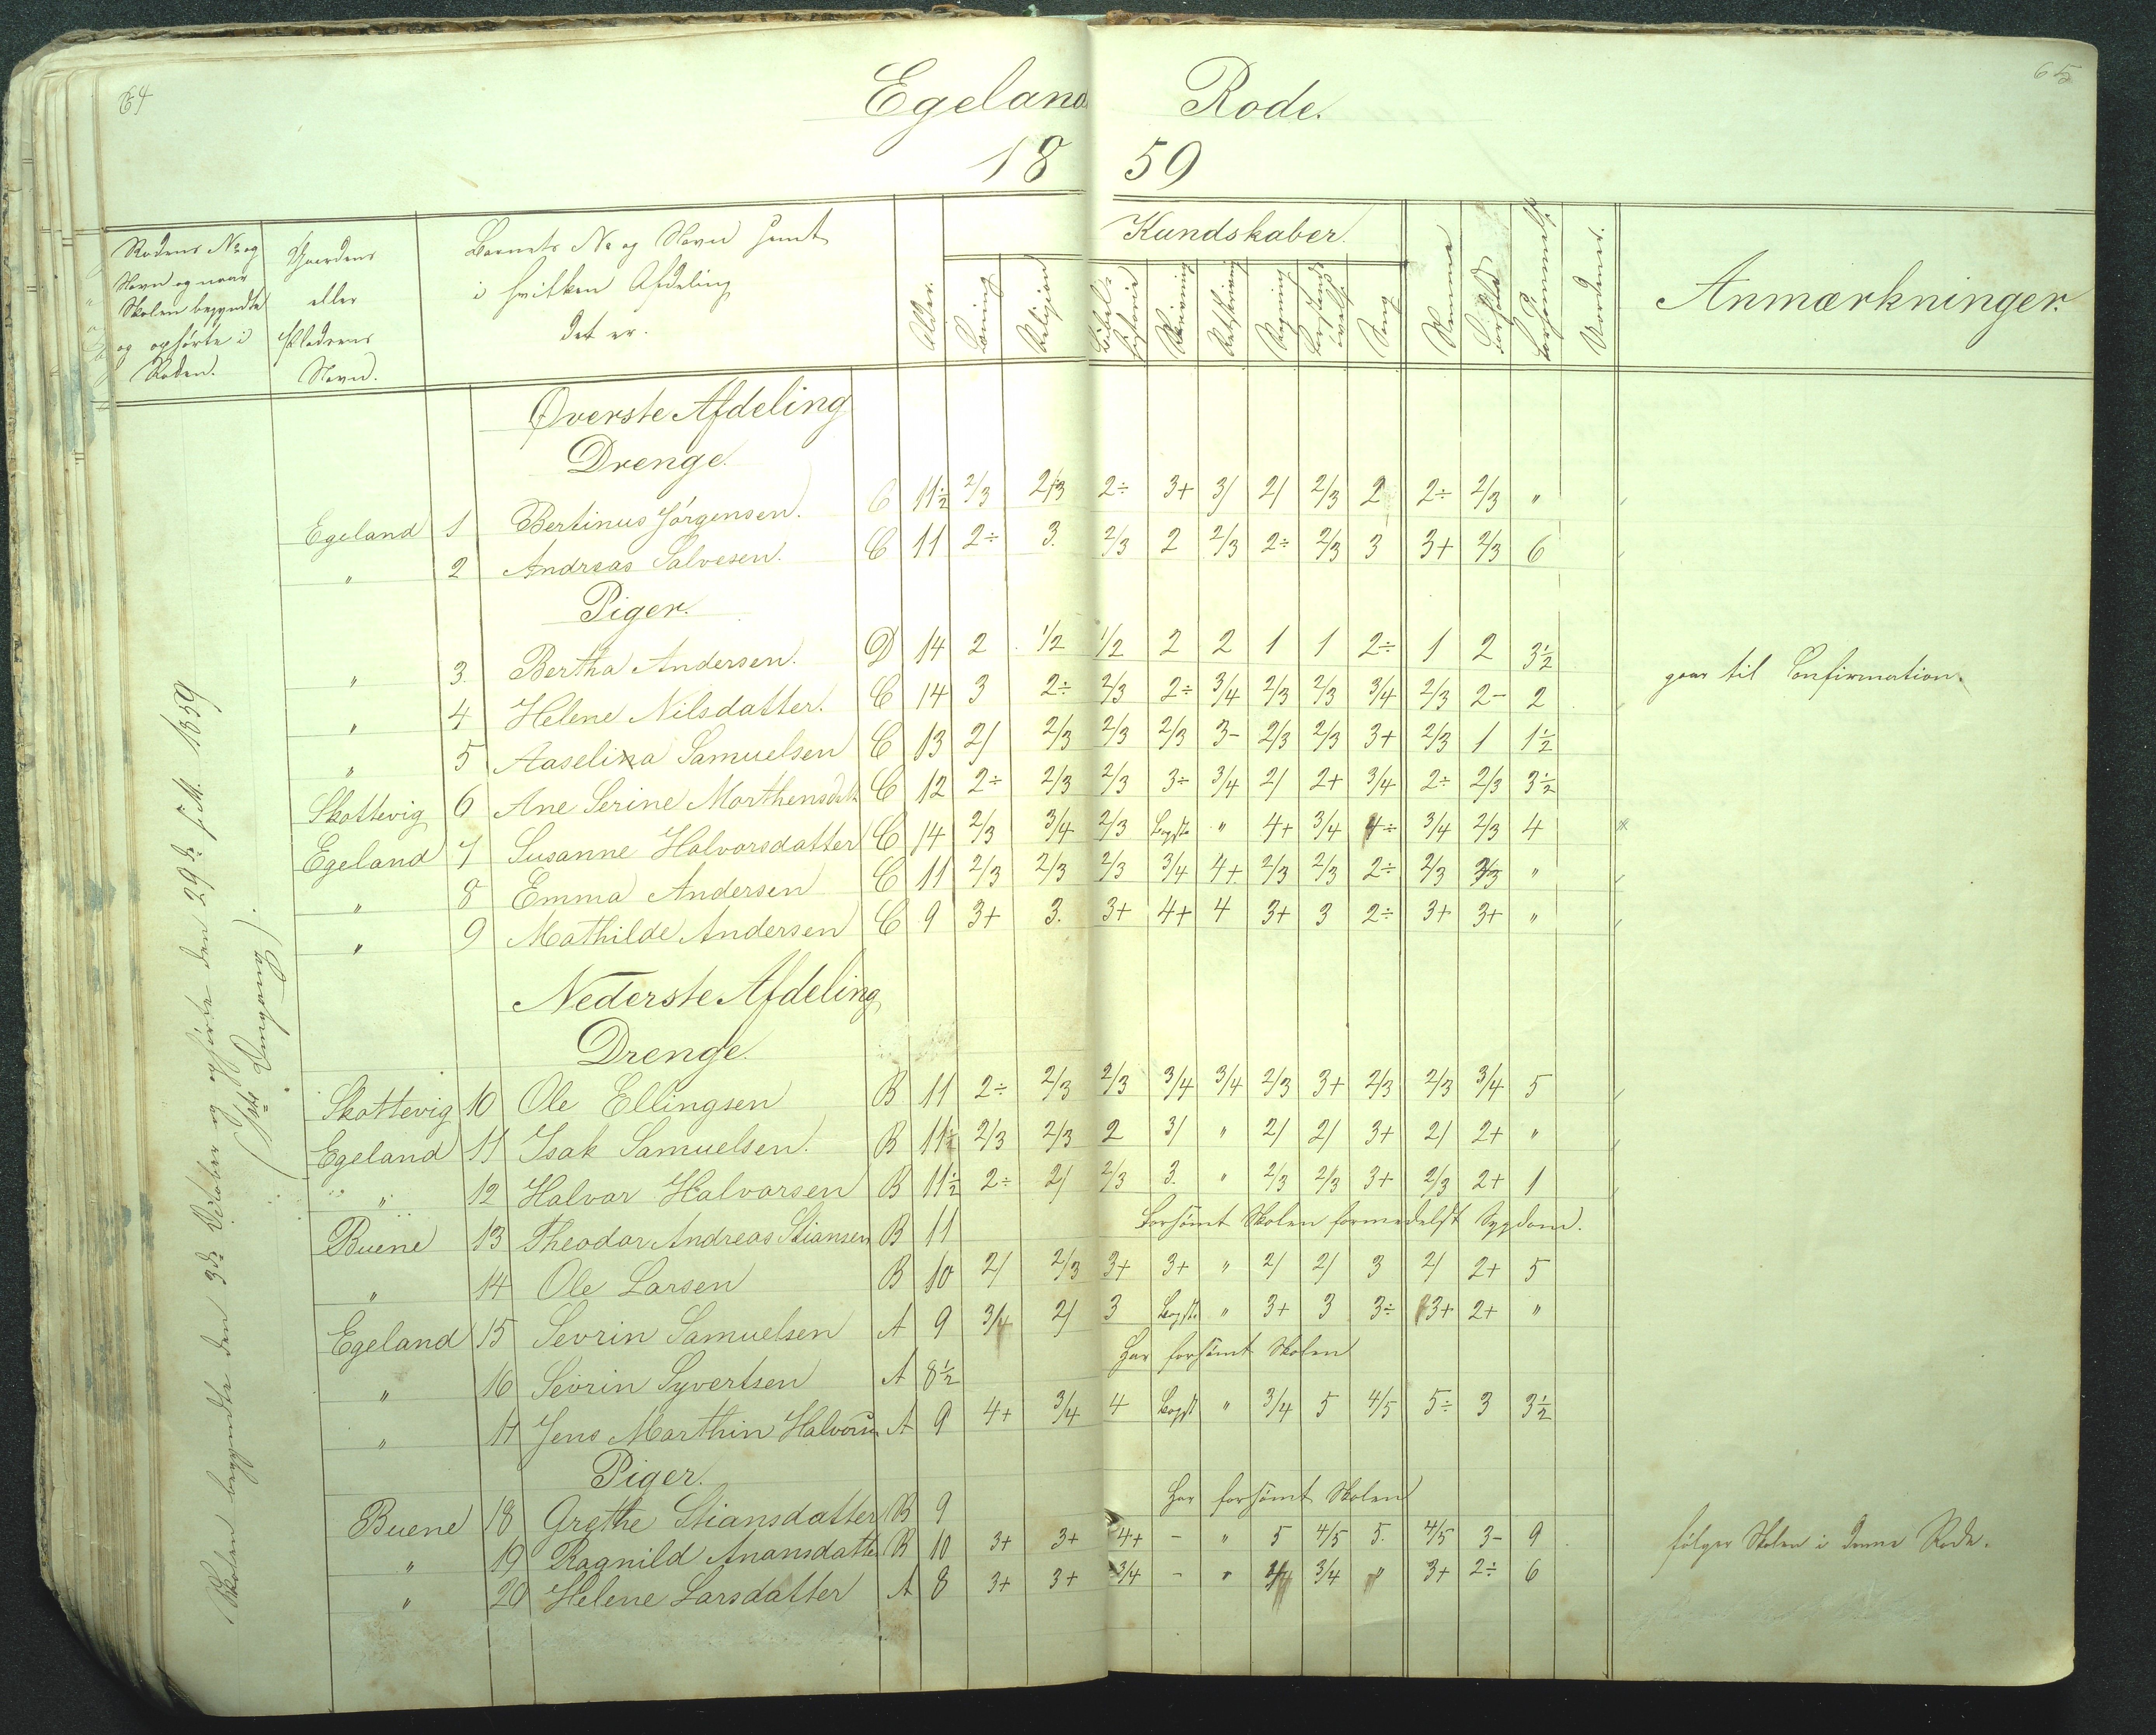 64
65
Egeland Rode.
1859
Rodens No og Navn og naar Skolen begyndte og ophørte i Roden.
Gaardens eller Fædrens Navn.
Barnets No og Navn samt i hvilken Afdeling det er.
Alder.
Kundskaber.
Læsning
Religion
Bibelhistorie
Skrivning
Retskrivning
Regning
Forstandsøvelse
Sang
Nemme
Forhold
Forsømmelse
Anmærkninger.
Skolen begyndte den 3die October og ophørte den 29de f. M. 1859
(1ste Omgang).
Øverste Afdeling
Drenge.
Egeland 1 Bertinus Jørgensen. C 11½ 2/3 2/3 2÷ 3+ 3/ 2/ 2/3 2 2÷ 2/3 "
" 2 Andreas Salvesen. C 11 2÷ 3. 2/3 2 2/3 2÷ 2/3 3 3+ 2/3 6
Piger.
" 3. Bertha Andersen. D 14 2 1/2 1/2 2 2 1 1 2÷ 1 2 3½ gaar til Confirmation.
" 4 Helene Nilsdatter. C 14 3 2÷ 2/3 2÷ 3/4 2/3 2/3 3/4 2/3 2- 2
" 5 Aaselina Samuelsen C 13 2/ 2/3 2/3 2/3 3- 2/3 2/3 3+ 2/3 1 1½
Skottevig 6 Ane Serine Morthensdatt. C 12 2÷ 2/3 2/3 3÷ 3/4 2/ 2+ 3/4 2÷ 2/3 3½
Egeland 7 Susanne Halvorsdatter C 14 2/3 3/4 2/3 Begst. " 4+ 3/4 4÷ 3/4 2/3 4
" 8 Emma Andersen C 11 2/3 2/3 2/3 3/4 4+ 2/3 2/3 2÷ 2/3 2/3 "
" 9 Mathilde Andersen C 9 3+ 3. 3+ 4+ 4 3+ 3 2÷ 3+ 3+ "
Nederste Afdeling
Drenge.
Skottevig 10 Ole Ellingsen B 11 2÷ 2/3 2/3 3/4 3/4 2/3 3+ 2/3 2/3 3/4 5
Egeland 11 Isak Samuelsen. B 11½ 2/3 2/3 2 3/ " 2/ 2/ 3+ 2/ 2+ "
" 12 Halvor Halvorsen B 11½ 2÷ 2/ 2/3 3. " 2/3 2/3 3+ 2/3 2+ 1
Buene 13 Theodor Andreas Stiansen B 11 Forsømt Skolen formedelst Sygdom.
" 14 Ole Larsen B 10 2/ 2/3 3+ 3+ " 2/ 2/ 3 2/ 2+ 5
Egeland 15 Sevrin Samuelsen A 9 3/4 2/ 3 Begst. " 3+ 3 3÷ 3+ 2+ "
" 16 Sevrin Syvertsen A 8½ Har forsømt Skolen
" 17 Jens Marthin Halvorsn A 9 4+ 3/4 4 Begst " 3/4 5 4/5 5÷ 3 3½
Piger.
Buene 18 Grethe Stiansdatter B 9 Har forsømt Skolen
" 19 Ragnild Anansdatte B 10 3+ 3+ 4+ - " 5 4/5 5. 4/5 3- 9 følger Skolen i denne Rode.
" 20 Helene Larsdatter A 8 3+ 3+ 3/4 - " 3/4 3/4 " 3+ 2÷ 6